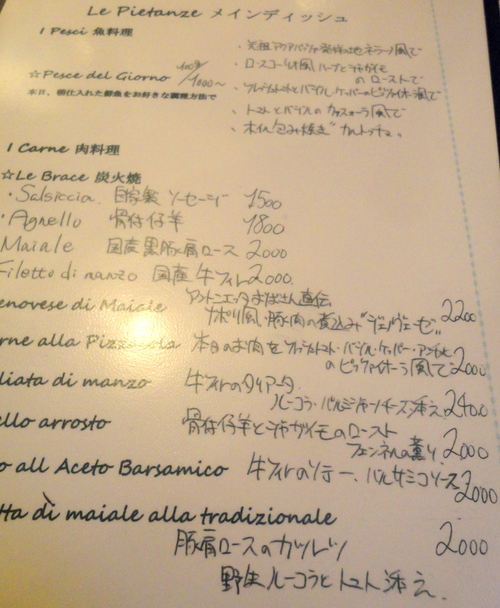 Le Pietanze メインディッシュ
I Pesci 魚料理
☆Pesce del Giorno 100g/1000〜
本日、朝仕入れた鮮魚をお好きな調理方法で
・元祖アクアパッツァ発祥の地ネラーノ風で
・ロスコーリオ風 ハーブとジャガイモ
のローストで
・フレッシュトマトとバイル・ケッパーのピッツァイオーラ風で
・トマトとバイルのカッスオーラ風で
・木の包み焼き カルトッチョ。
I Carne 肉料理
☆Le Brace 炭火焼
・Salsiccia 自家製 ソーセージ 1500
・Agnello 骨付仔羊 1800
Maiale 国産黒豚肩ロース 2000
Filetto di manzo 国産牛フィレ 2000
enovese di Maiale アントニエッタおばさん直伝
ナポリ風・豚肉の煮込み"ジェノヴェーゼ" 2200
rne alla Pizzaiola 本日のお肉をフレッシュトマト・バイル・ケッパー・アンチョビ
のピッツァイオーラ風で 2000
liata di manzo 牛フィレのタリアータ
ルーコラ・パルミジャーノチーズ添え 2400
ello arrosto 骨付仔羊とジャガイモのロースト
フェンネルの薫り 2000
o all Aceto Barsamico 牛フィレのソテー、バルサミコソース 2000
tta di maiale alla tradizionale
豚肩ロースのカツレツ 2000
野生ルーコラとトマト添え.